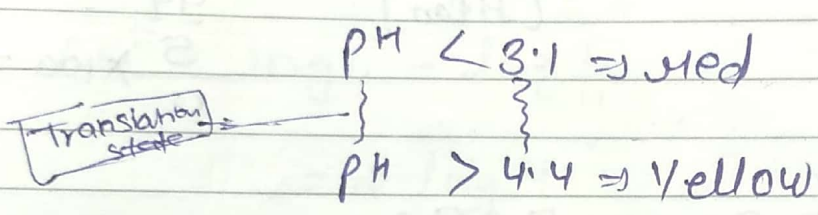 pH < 3.1 ⇒ Red
Translation
state
pH > 4.4 ⇒ Yellow